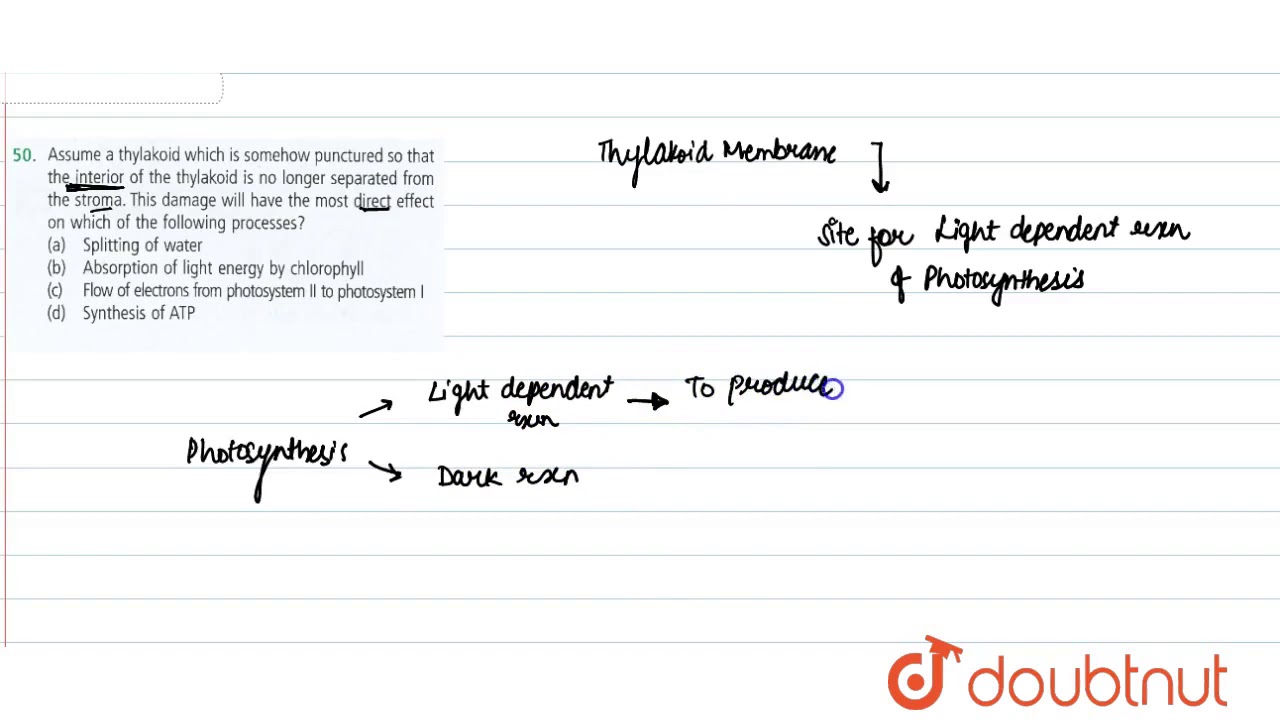 50. Assume a thylakoid which is somehow punctured so that
the interior of the thylakoid is no longer separated from
the stroma. This damage will have the most direct effect
on which of the following processes?
(a) Splitting of water
(b) Absorption of light energy by chlorophyll
(c) Flow of electrons from photosystem II to photosystem I
(d) Synthesis of ATP
Thylakoid Membrane
Site for Light dependent rxn
of Photosynthesis
Light dependent
rxn
To produce
Photosynthesis
Dark rxn
doubtnut